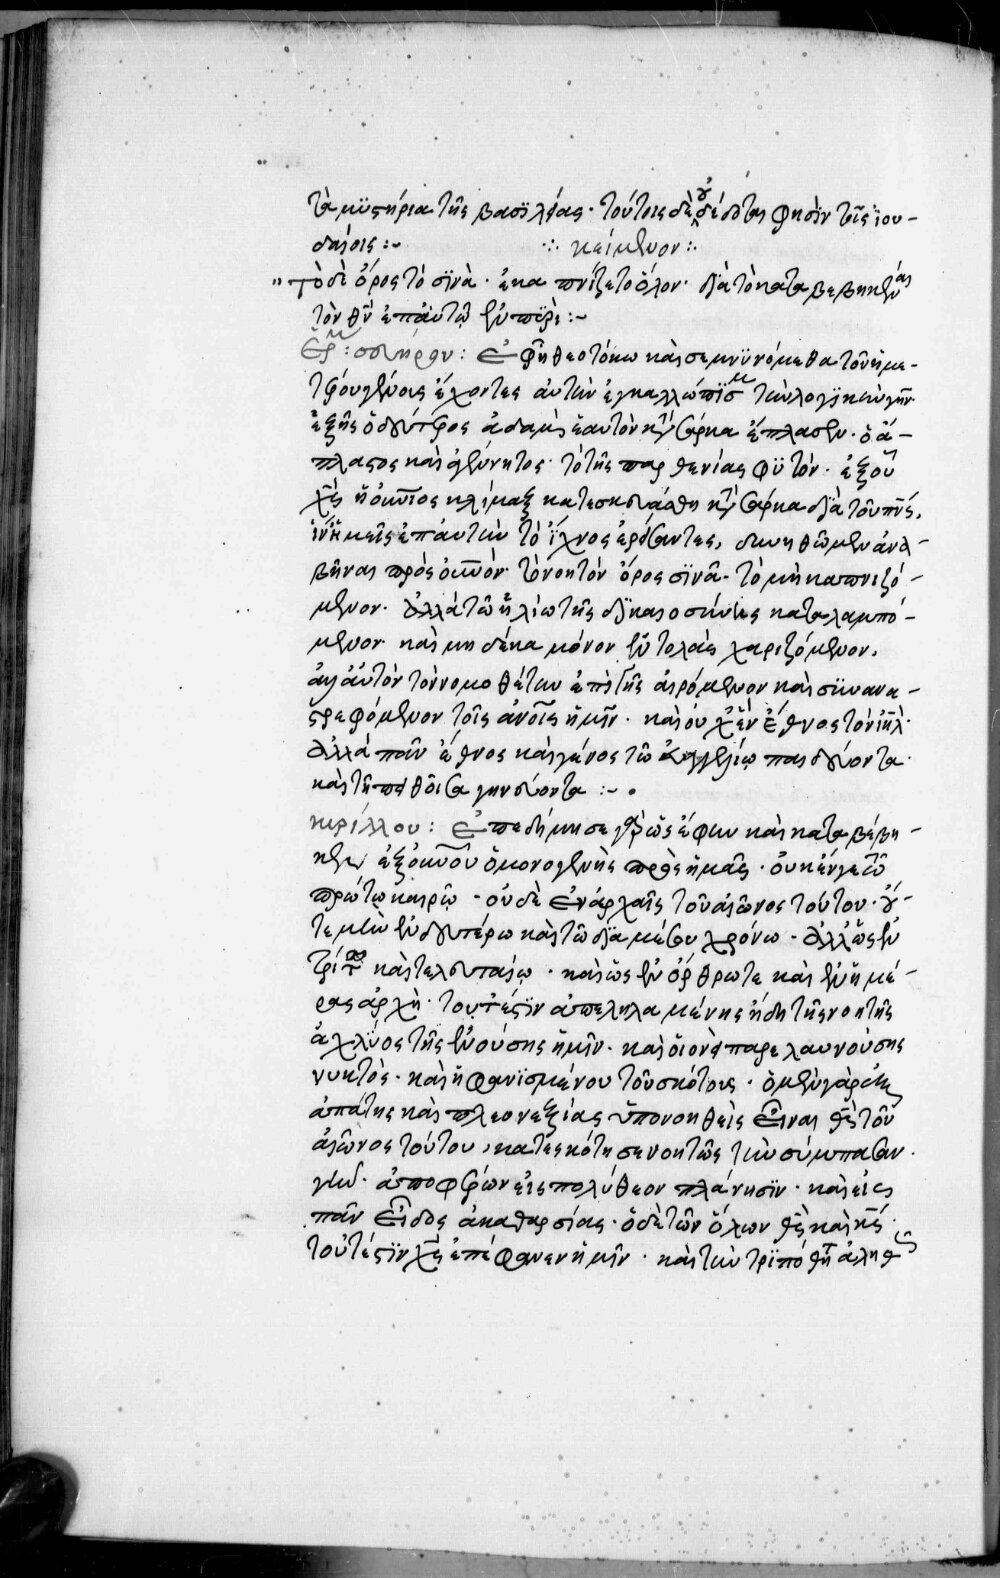 τὰ μυστήρια τῆς βασιλείας · τούτοις δὲ οὐ δέδοται φησὶν τοῖς ἰου-
δαίοις :~ ∴ κείμενον :·
" τὸ δὲ ὄρος τὸ σινὰ · ἐκαπνίζετο ὅλον · διὰ τὸ καταβεβηκέναι
τὸν θν̄ ἐπ' αὐτῷ ἐν πυρί :~
ἐφ' ᾗ θεοτόκω καὶ σεμνυνόμεθα τοῦ ἡμε-
τέρου γένους ἔχοντες αὐτὴν ἐγκαλλώπισμ τὴν λογικὴν γῆν
ἐξ ἧς ὁ δεύτερος ἀδαμ ἑαυτὸν κατὰ σάρκα ἔπλασεν · ὁ ἄ-
πλαστος καὶ ἀγέννητος · τὸ τῆς παρθενίας φυτόν · ἐξ οὗ
χς̄ ἡ οὐνιος κλίμαξ κατεσκευάσθη κατὰ σάρκα διὰ τοῦ πνς̄,
ἵν' ἡμεῖς ἐπ' αὐτὴν τὸ ἴχνος ἐρείσαντες, δυνηθῶμεν ἀνα-
βῆναι πρὸς οὐνὸν · τὸ νοητὸν ὄρος σινᾶ · τὸ μὴ καπνιζό-
μενον · ἀλλὰ τῶ ἡλίω τῆς δικαιοσύνης καταλαμπό-
μενον καὶ μὴ δέκα μόνον ἐντολὰς χαριζόμενον,
αὐτὸν τὸν νομοθέτην ἐπὶ γῆς αἰρόμενον καὶ συνανα-
στρεφόμενον τοῖς ἀνοις ἡμῖν · καὶ οὐχ ἓν ἔθνος τὸν ιηλ̄ ·
ἀλλὰ πᾶν ἔθνος καὶ γένος τῶ εὐαγγελίῳ παιδεύοντα ·
καὶ γεννῶντα :~ •
κυρίλλου : Ἐπεδήμησε γὰρ ὡς ἔφην καὶ καταβέβη-
κεν ἐξ οὐνοῦ ὁ μονογενὴς πρὸς ἡμᾶς · οὐκ ἔν γε τῶ
πρώτῳ καιρῷ · οὐδὲ ἐν ἀρχαῖς τοῦ αἰῶνος τούτου · οὔ-
τε μὴν ἐν δευτέρω καὶ τῶ διὰ μέσου χρόνω · ἀλλ' ὡς ἐν
τρίτω καὶ τελευταίῳ · καὶ ὡς ἐν ὄρθρω τε καὶ ἐν ἡμέ-
ρας ἀρχῆ · τουτέστιν ἀπεληλαμένης ἤδη τῆς νοητῆς
ἀχλύος τῆς ἐνούσης ἡμῖν · καὶ οἱονεὶ παρελαυνούσης
νυκτὸς · καὶ ἠφανισμένου τοῦ σκότους · ὁ μὲν γὰρ ἐξ
ἀπάτης καὶ πλεονεξίας ὑπονοηθεὶς εἶναι θς̄ τοῦ
αἰῶνος τούτου, κατεσκότισε νοητῶς τὴν σύμπασαν ·
γῆν · ἀποφέρων εἰς πολύθεον πλάνησιν · καὶ εἰς
πᾶν εἶδος ἀκαθαρσίας · ὁ δὲ τῶν ὅλων θς̄ καὶ κς̄ ·
τουτέστιν χς̄ ἐπέφανεν ἡμῖν · καὶ τὴν τριπόθητ ἀληθῶς